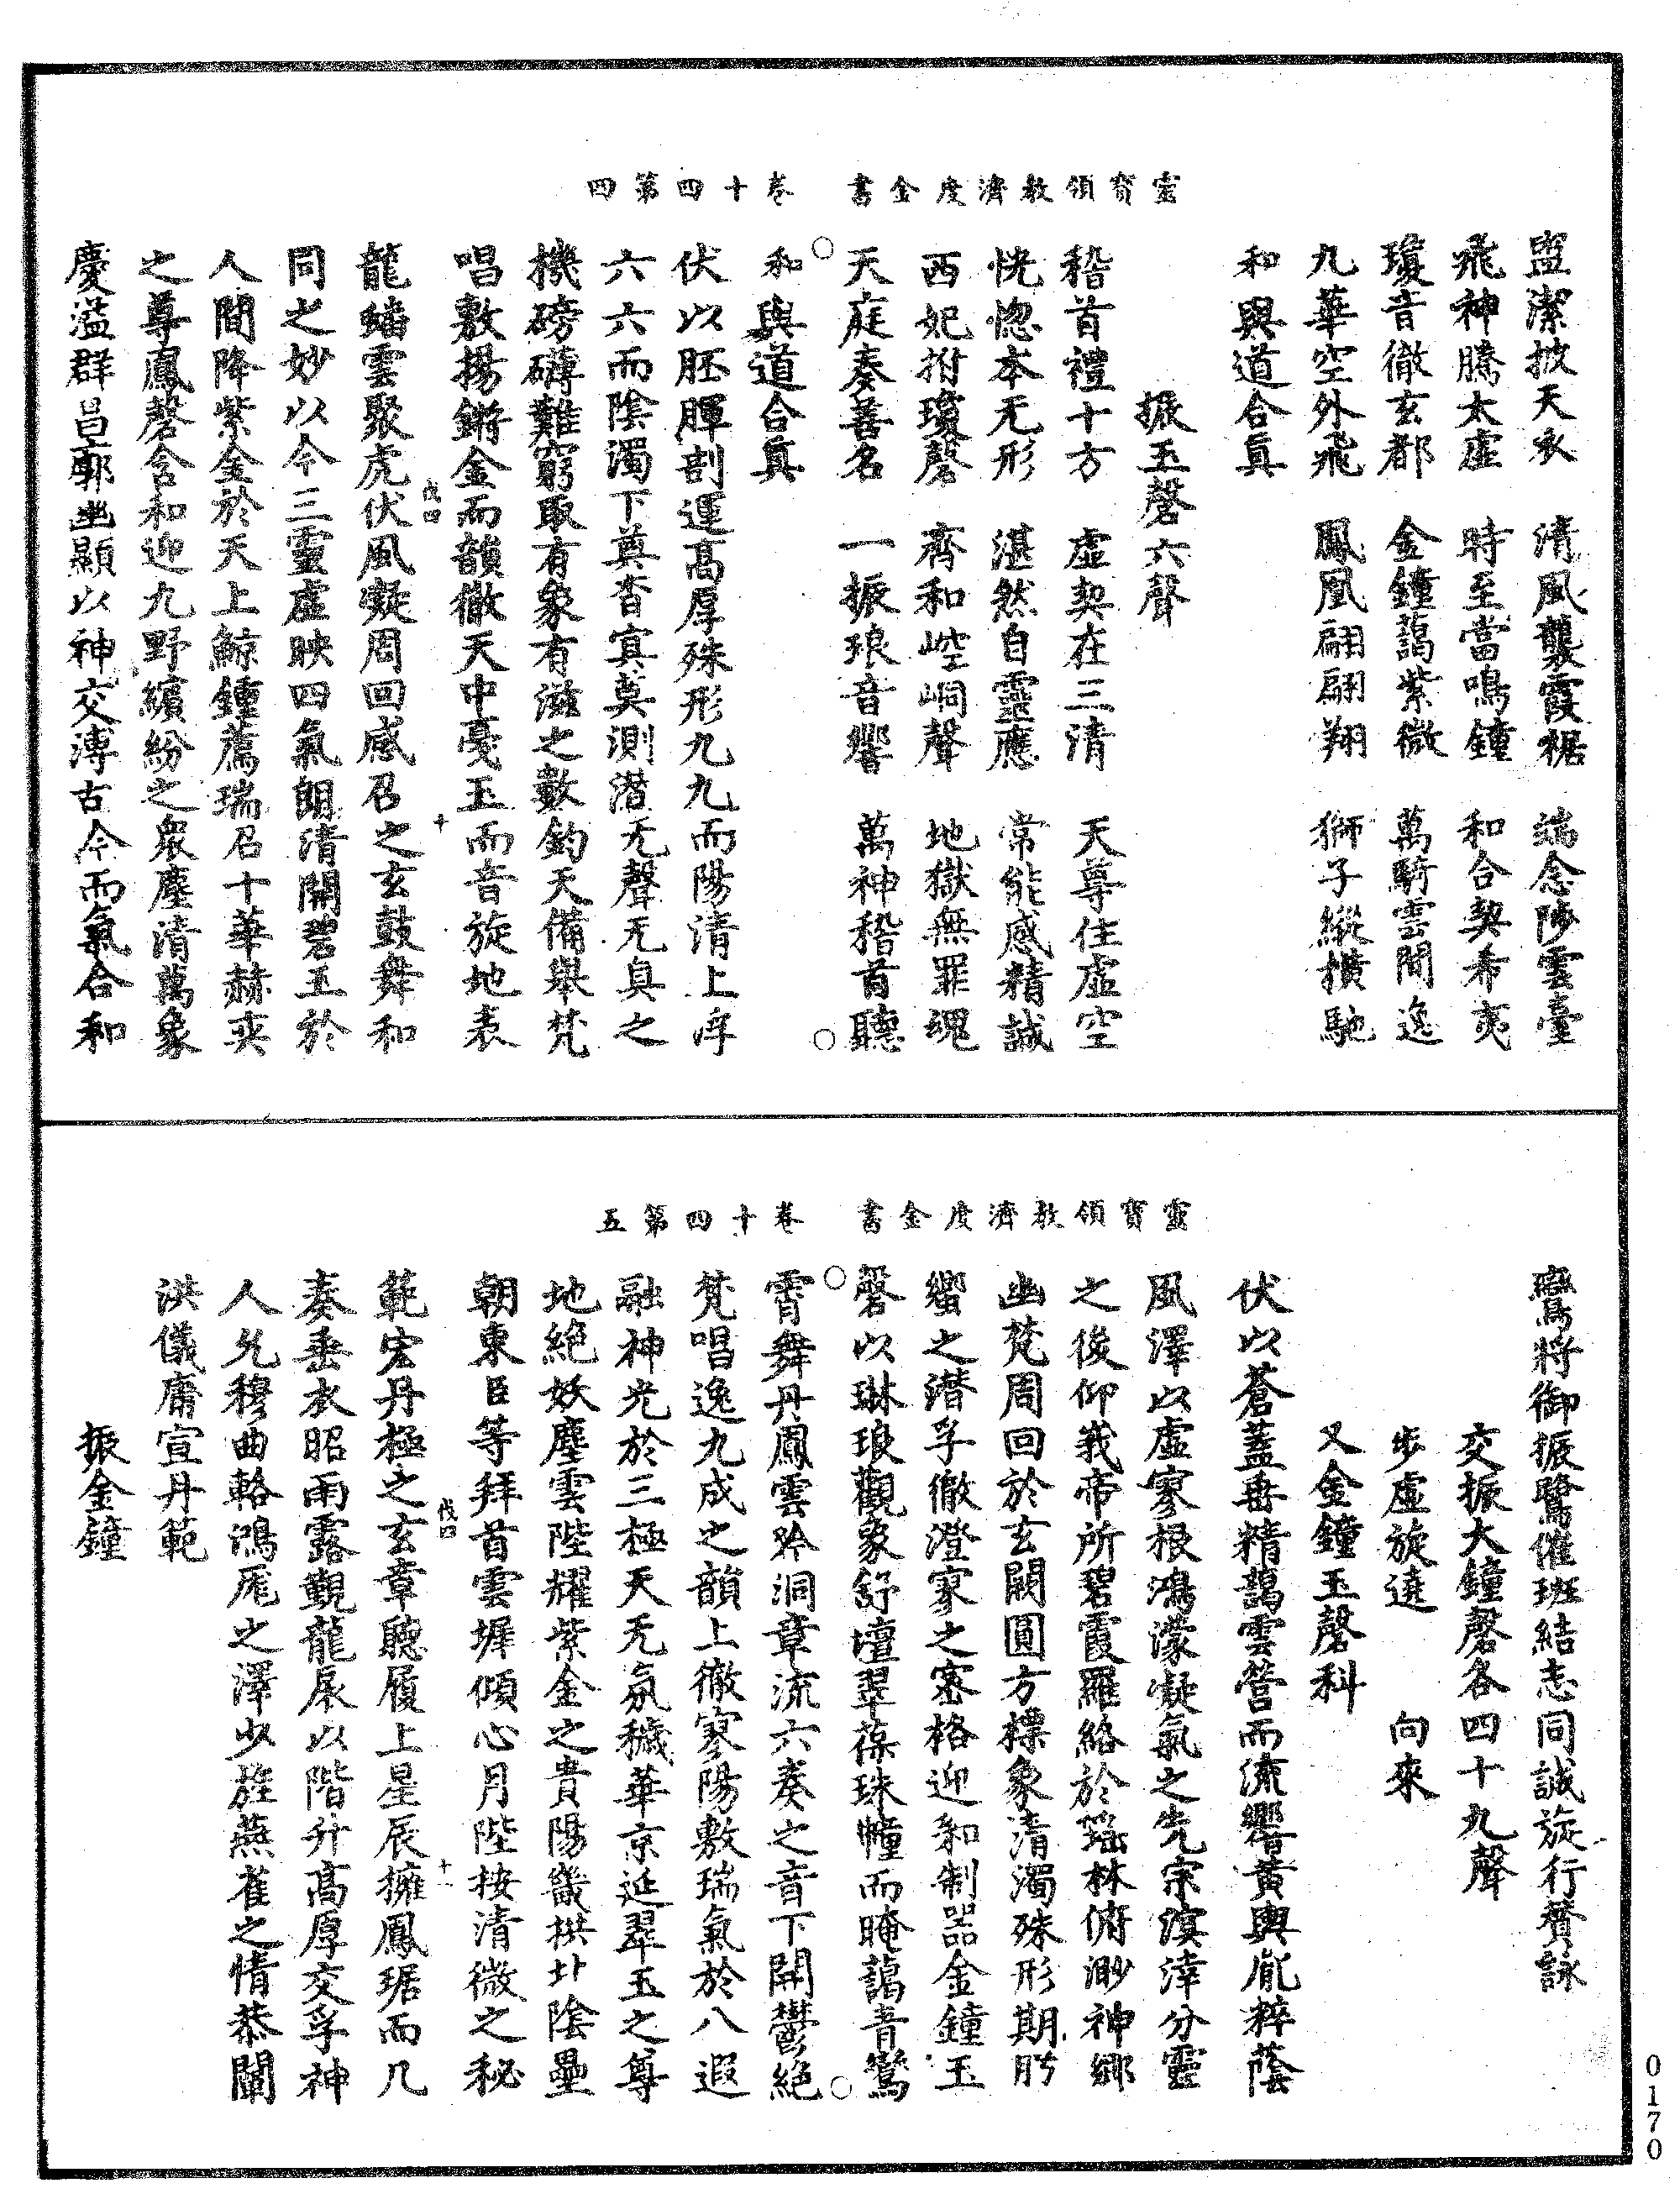 靈寶領教濟度金書 卷十四第四
盥潔披天衣 清風襲霞裾 端念陟雲臺
飛神騰太虛 時至當鳴鐘 和合契希夷
瓊音徹玄都 金鐘藹紫微 萬騎雲間逸
九華空外飛 鳳凰翩翩翔 獅子縱橫馳
和與道合真
振玉磬六聲
稽首禮十方 虛契在三清 天尊住虛空
恍惚本无形 湛然自靈應 常能感精誠
西妃拊瓊磬 齊和崆峒聲 地獄無罪魂
天庭奏善名 一振琅音響 萬神稽首聽
和與道合真
伏以胚腪剖運高厚殊形九九而陽清上浮
六六而陰濁下奠杳冥莫測潜无聲无臭之
機磅礴難窮取有象有滋之數鈞天備舉梵
唱敷揚鏘金而韻徹天中戛玉而音旋地表
伐四
十
龍蟠雲聚虎伏風凝周回感召之玄鼓舞和
同之妙以今三靈虛映四氣朗清開碧玉於
人間降紫金於天上鯨鍾薦瑞召十華赫奕
之尊鳳磬含和迎九野繽紛之衆塵清萬象
慶溢群昌廓幽顯以神交溥古今而氣合和
靈寶領教濟度金書 卷十四第五
鸞將御振鷺催班結志同誠旋行賛詠
交振大鐘磬各四十九聲
步虛旋遶 向來
又金鐘玉磬科
伏以蒼蓋垂精藹雲營而流響黃輿胤粹蔭
風澤以虛寥根鴻濛凝氣之先宗溟涬分靈
之後仰莪帝所碧霞羅絡於瑶林俯渺神鄉
幽梵周回於玄闕圓方標象清濁殊形期肸
蠁之潜孚徹澄寥之密格迎和制器金鐘玉
磬以琳琅觀象舒壇翠葆珠幢而晻藹青鸞
霄舞丹鳳雲吟洞章流六奏之音下開鬱絕
梵唱逸九成之韻上徹寥陽敷瑞氣於八遐
融神光於三極天无氛穢華京延翠玉之尊
地絕妖塵雲陛耀紫金之貴陽畿拱卦陰壘
朝東臣等拜首雲墀傾心月陛按清微之秘
伐四
十一
範宏丹極之玄章聽履上星辰擁鳳琚而几
奏垂衣昭雨露覲龍扆以階升高厚交孚神
人允穆曲輅鴻厖之澤少旌燕雀之情恭闡
洪儀庸宣丹範
振金鐘
0170